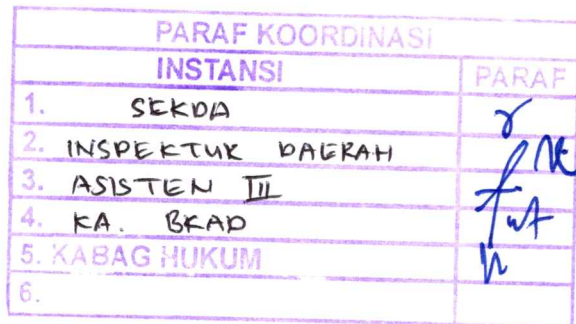 PARAF KOORDINASI
INSTANSI PARAF
1. SEKDA
2. INSPEKTUR DAERAH
3. ASISTEN III
4. KA. BKAD
5. KABAG HUKUM
6.